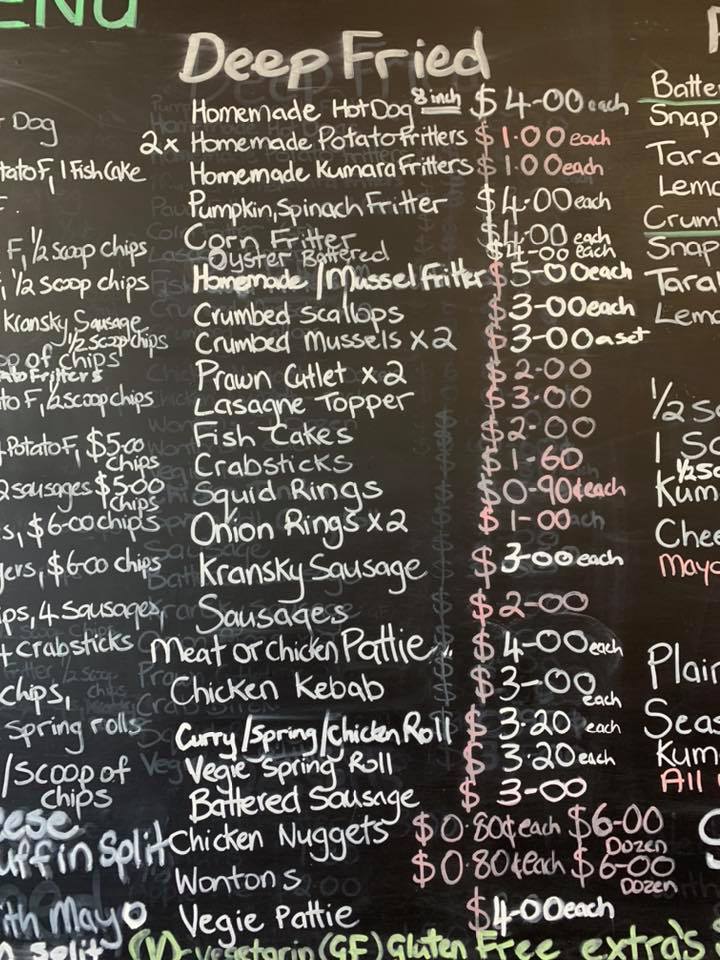 ENU
Deep Fried
Homemade Hot Dog 8 inch $4-00 each
2x Homemade Potato Fritters $1.00 each
Homemade Kumara Fritters $1.00 each
Pumpkin, Spinach Fritter $4.00 each
Corn Fritter $4.00 each
Oyster Battered $4-00 each
Homemade / Mussel Fritter $5-00 each
Crumbed Scallops $3-00 each
Crumbed Mussels x2 $3-00 a set
Prawn Cutlet x2 $2-00
Lasagne Topper $3-00
Fish Cakes $2-00
Crabsticks $1-60
Squid Rings $0-90¢ each
Onion Rings x2 $1-00
Kransky Sausage $3-00 each
Sausages $2-00
Meat or chicken Pattie $4-00 each
Chicken Kebab $3-00 each
Curry/Spring/Chicken Roll $3-20 each
Vegie Spring Roll $3-20 each
Battered Sausage $3-00
Chicken Nuggets $0.80¢ each $6-00 Dozen
Wontons $0.80¢ each $6-00 Dozen
Vegie Pattie $4-00 each
(V)-Vegetarin (GF) Gluten Free extra's
Dog
tato F, 1 Fish Cake
F, 1/2 scoop chips
, 1/2 scoop chips
Kransky Sausage
1/2 scoop chips
op of chips
ato Fritters
to F, 1/2 scoop chips
Potato F, $5.00
Chips
2 sausages $5.00
Chips
s, $6-00 chips
gers, $6-00 chips
ips, 4 Sausages,
+ crabsticks
chips,
Spring rolls
/Scoop of
chips
eese
uffin Split
ith Mayo
n Split
Batte
Snap
Tara
Lemo
Crum
Snap
Tara
Lemo
1/2 Sc
1 Sc
1/2 Sc
Kum
Chee
Mayo
Plain
Seas
Kum
All